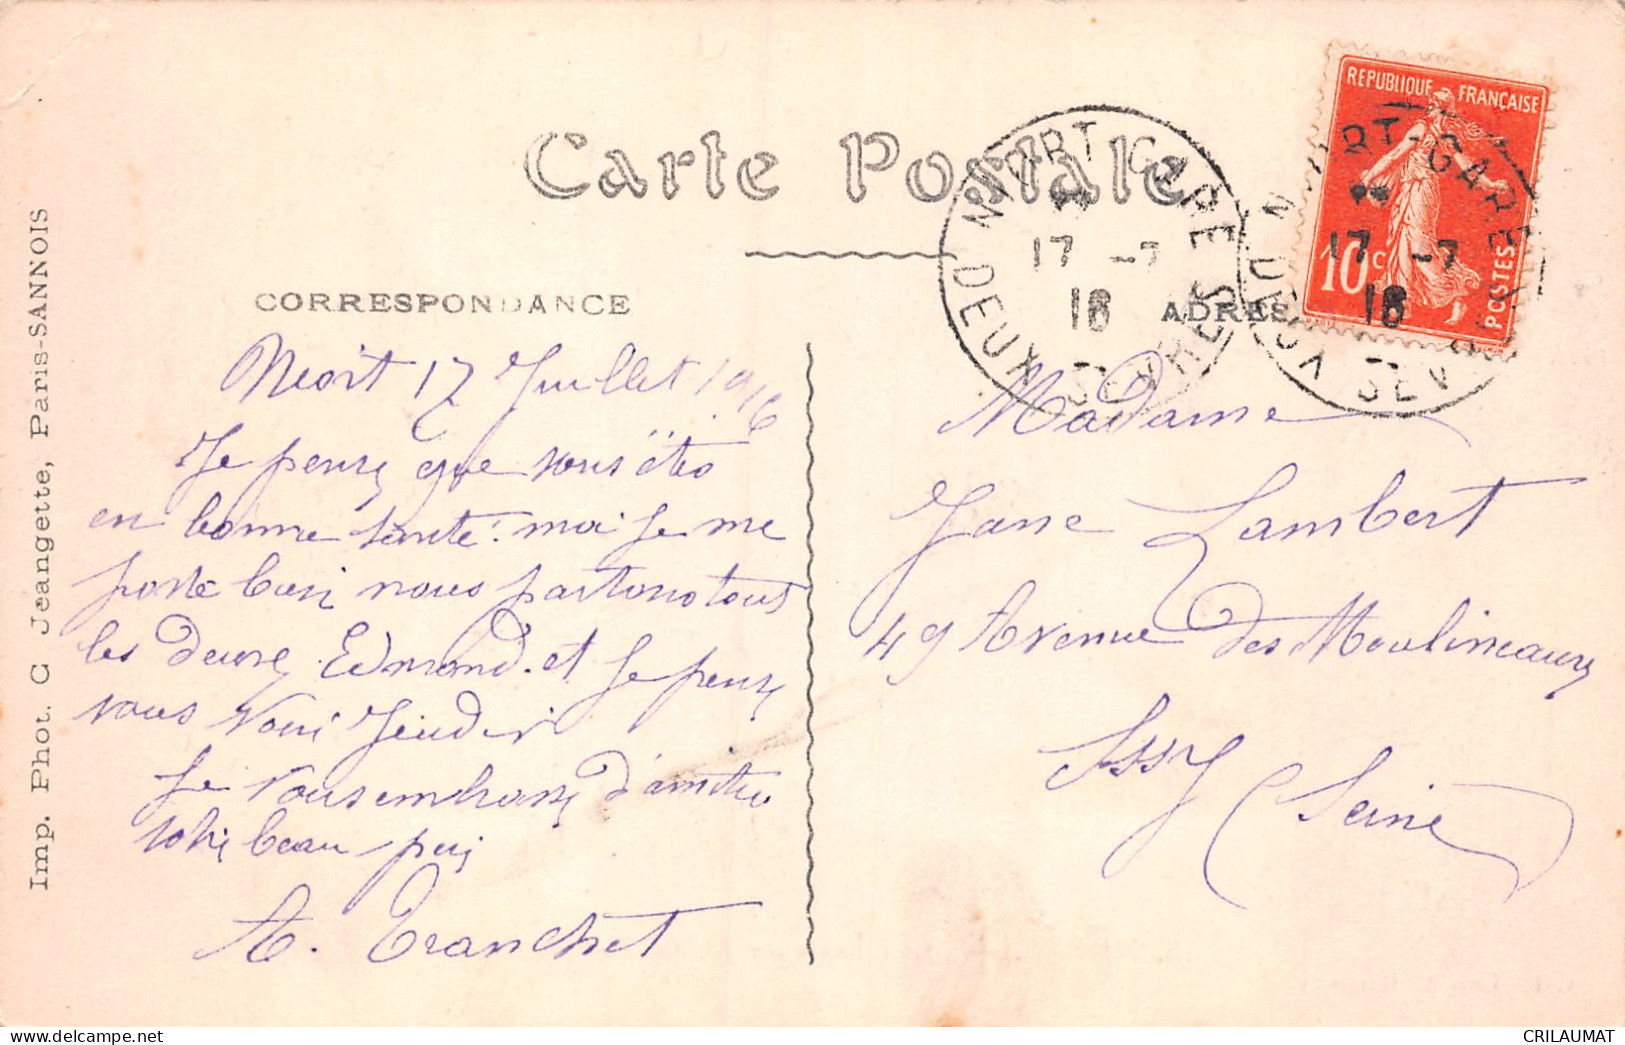 Carte Postale
CORRESPONDANCE
ADRES
REPUBLIQUE FRANÇAISE
10c
POSTES
NIORT-GARE
17 -7
16
DEUX-SEVRES
NIORT-GARE
17 -7
16
DEUX SEVRES
Imp. Phot. C Jeangette, Paris-SANNOIS
Niort 17 Juillet 1916
Je pense que vous êtes
en bonne santé. moi je me
porte bien nous partons tous
les deux Edmond. et Je pense
vous voir Jeudi
Je vous embrasse d'amitié
beau
A. Tranchet
Madame
Jane Lambert
49 Avenue des Moulineaux
Issy (Seine)
CRILAUMAT